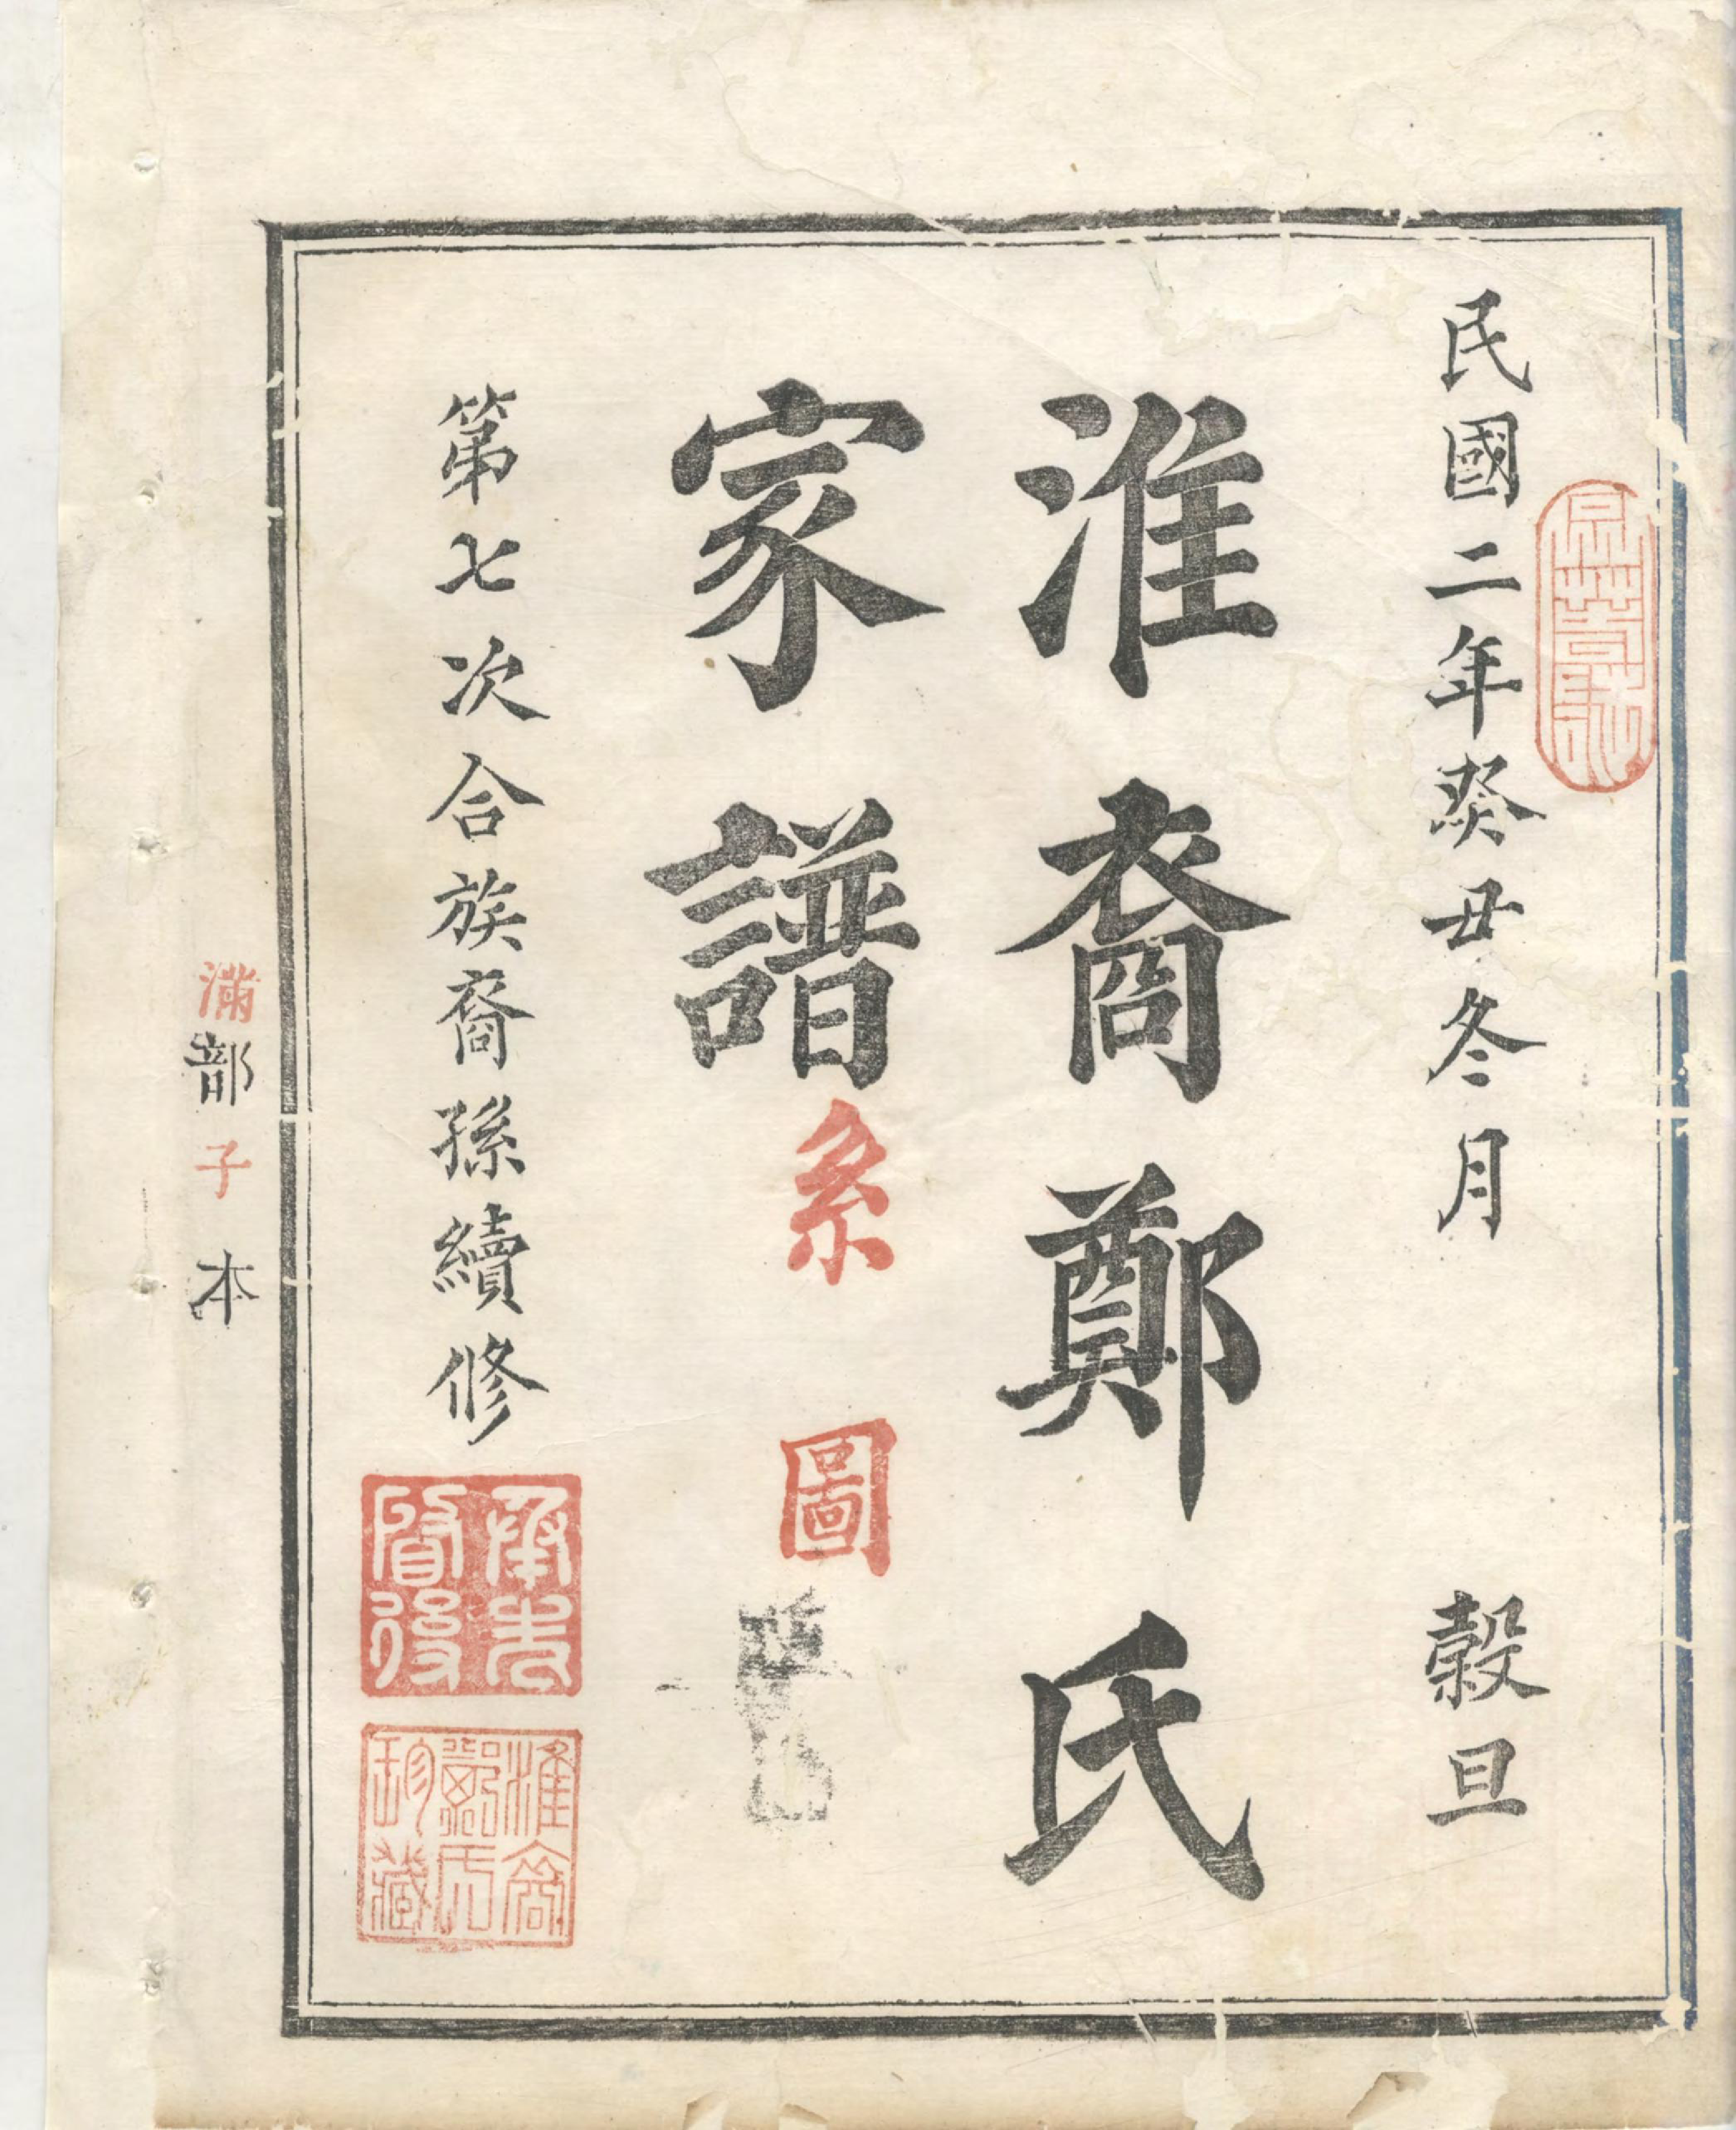 民國二年癸丑冬月 穀旦
淮裔鄭氏
家譜系圖
第七次合族裔孫續修
承先啓後
淮裔鄭氏珍藏
滿部子本